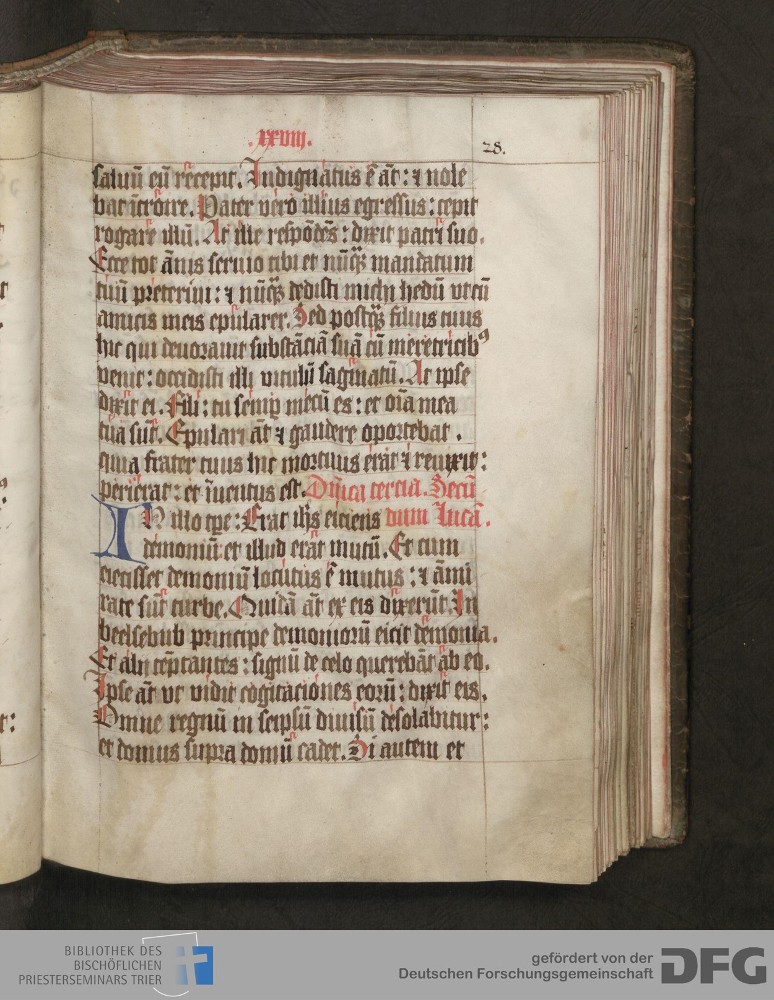 .xxviij.
28.
saluū eū recepit. Indignatus ē āt: ⁊ nole
bat ītroire. Pater vero illius egressus: cepit
rogare illū. At ille respōdēs: dixit patri suo.
Ecce tot ānis seruio tibi et nūq̄ mandatum
tuū preteriui: ⁊ nūq̄ dedisti michi hedū vt cū
amicis meis epularer. Sed postq̄ filius tuus
hic qui deuorauit substāciā suā cū meretricibꝰ
venit: occidisti illi vitulū saginatū. At ipse
dixit ei. Fili: tu semp mecū es: et oīa mea
tua sūt. Epulari āt ⁊ gaudere oportebat.
quia frater tuus hic mortuus erat ⁊ reuixit:
perierat: et īuentus est. Dn̄ica tercia. Secū
IN illo tp̄e: Erat ih̄s eiciens dum Lucā.
demoniū: et illud erat mutū. Et cum
eiecisset demoniū locutus ē mutus: ⁊ āmi
rate sūt turbe. Quidā āt ex eis dixerūt. In
beelsebub principe demoniorū eicit demonia.
Et alij tēptantes: signū de celo querebāt ab eo.
Ipse āt vt vidit cogitaciones eorū: dixit eis.
Omne regnū in seipsū diuisū desolabitur:
et domus supra domū cadet. Si autem et
BIBLIOTHEK DES
BISCHÖFLICHEN
PRIESTERSEMINARS TRIER
gefördert von der
Deutschen Forschungsgemeinschaft DFG